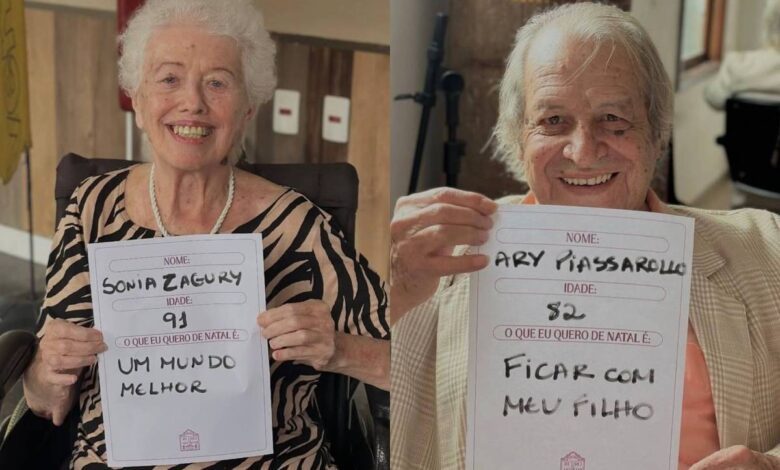 NOME:
SONIA ZAGURY
IDADE:
91
O QUE EU QUERO DE NATAL É:
UM MUNDO
MELHOR
NOME:
ARY PIASSAROLLO
IDADE:
82
O QUE EU QUERO DE NATAL É:
FICAR COM
MEU FILHO